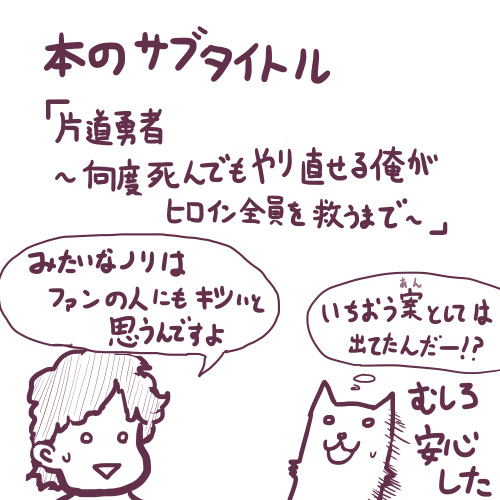 本のサブタイトル
「片道勇者
～何度死んでもやり直せる俺が
ヒロイン全員を救うまで～」
みたいなノリは
ファンの人にもキツいと
思うんですよ
いちおう案としては
あん
出てたんだー!?
むしろ
安心
した